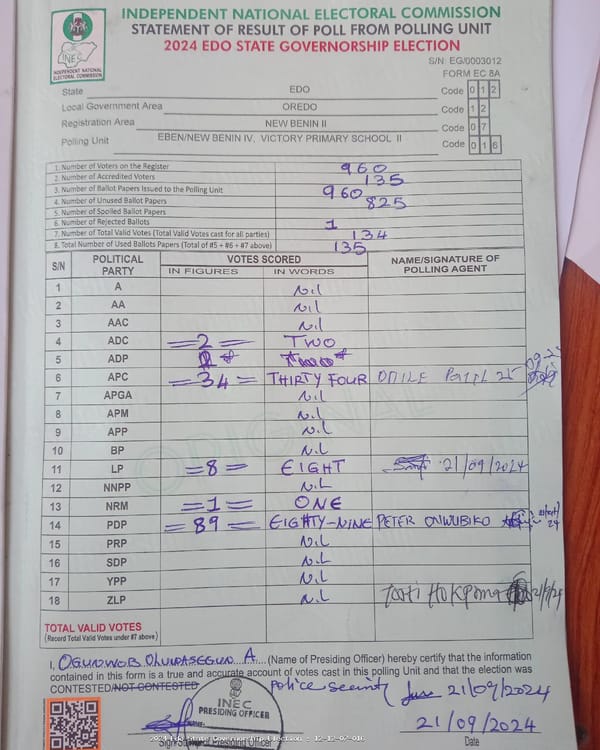 INDEPENDENT NATIONAL ELECTORAL COMMISSION
STATEMENT OF RESULT OF POLL FROM POLLING UNIT
2024 EDO STATE GOVERNORSHIP ELECTION
INEC
INDEPENDENT NATIONAL ELECTORAL COMMISSION
S/N: EG/0003012
FORM EC 8A
State EDO Code 0 1 2
Local Government Area OREDO Code 1 2
Registration Area NEW BENIN II Code 0 7
Polling Unit EBEN/NEW BENIN IV, VICTORY PRIMARY SCHOOL II Code 0 1 6
1. Number of Voters on the Register 960
2. Number of Accredited Voters 135
3. Number of Ballot Papers Issued to the Polling Unit 960
4. Number of Unused Ballot Papers 825
5. Number of Spoiled Ballot Papers
6. Number of Rejected Ballots 1
7. Number of Total Valid Votes (Total Valid Votes cast for all parties) 134
8. Total Number of Used Ballots Papers (Total of #5 + #6 + #7 above) 135
S/N POLITICAL PARTY VOTES SCORED NAME/SIGNATURE OF POLLING AGENT
IN FIGURES IN WORDS
1 A Nil
2 AA Nil
3 AAC Nil
4 ADC =2= TWO
5 ADP
6 APC =34= THIRTY FOUR
7 APGA Nil
8 APM Nil
9 APP Nil
10 BP Nil
11 LP =8= EIGHT 21/09/2024
12 NNPP NiL
13 NRM =1= ONE
14 PDP =89= EIGHTY-NINE PETER ONWUBIKO
15 PRP NiL
16 SDP NiL
17 YPP NiL
18 ZLP NiL
ORIGINAL
TOTAL VALID VOTES
(Record Total Valid Votes under #7 above)
I, A (Name of Presiding Officer) hereby certify that the information
contained in this form is a true and accurate account of votes cast in this polling Unit and that the election was
CONTESTED/NOT CONTESTED
Police security 21/09/2024
INEC
PRESIDING OFFICER
21/09/2024
Signature of Presiding Officer
Date